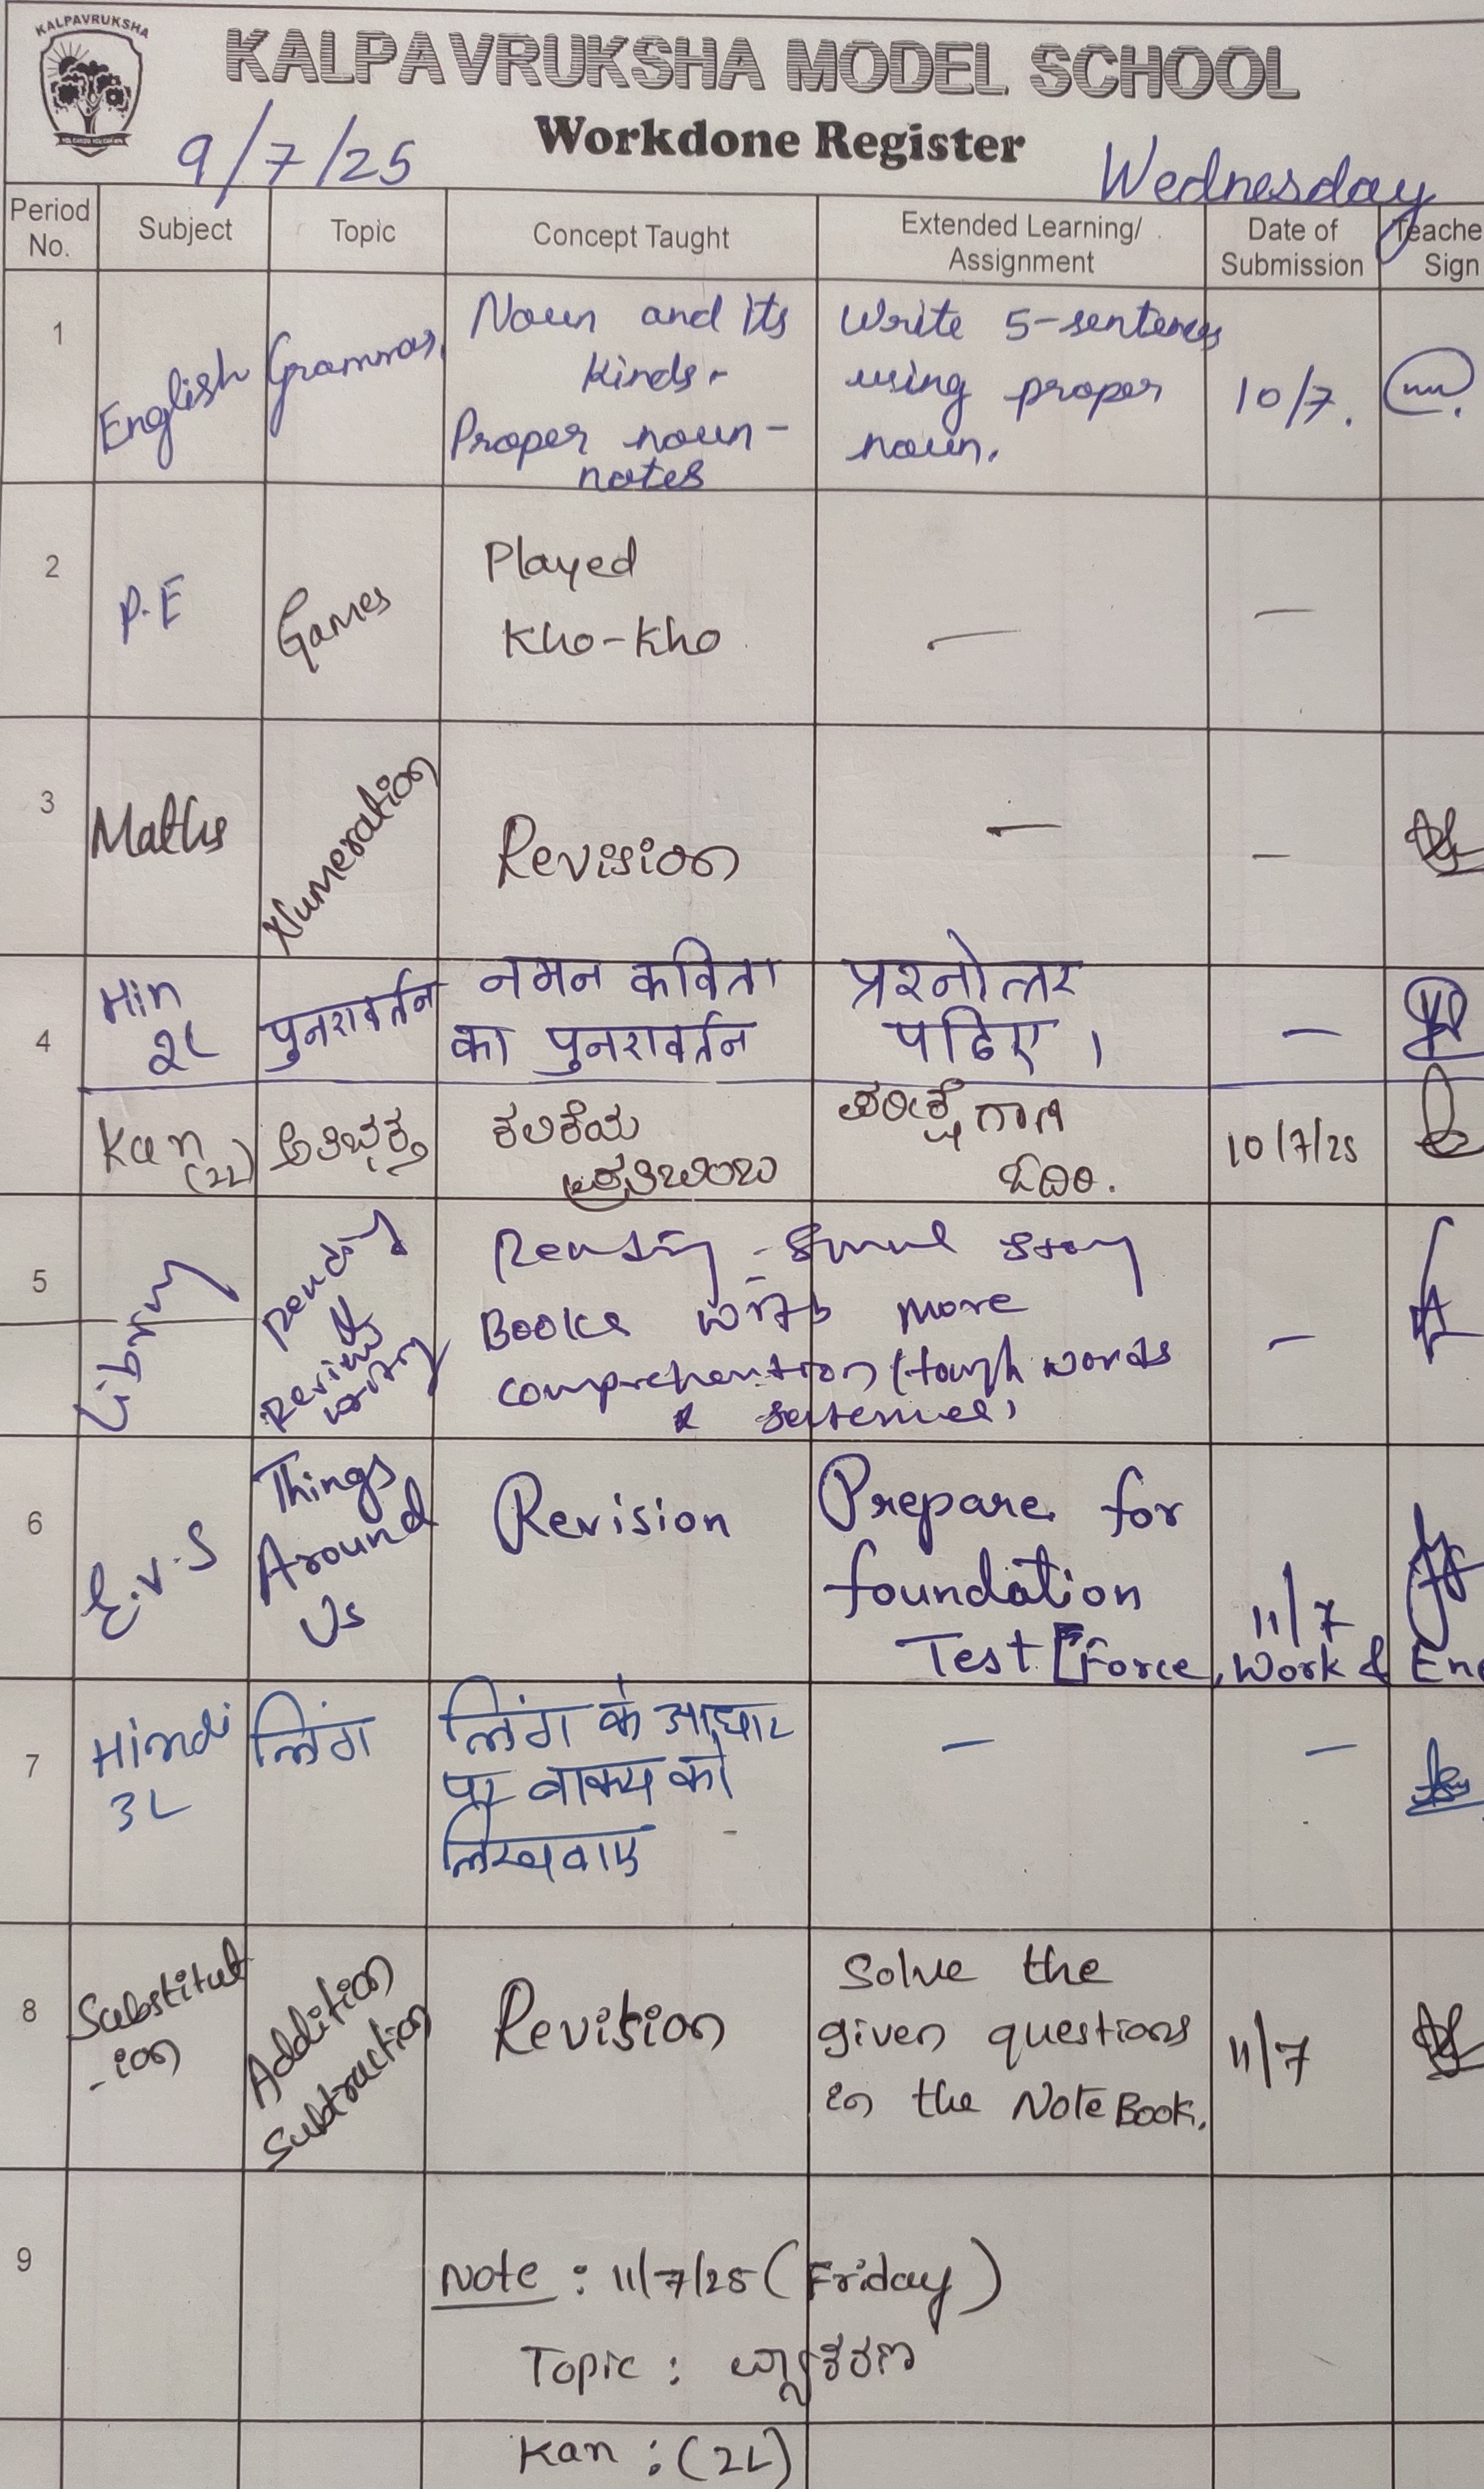 KALPAVRUKSHA
KALPAVRUKSHA MODEL SCHOOL
Workdone Register
9/7/25
Wednesday
Period No.
Subject
Topic
Concept Taught
Extended Learning/ Assignment
Date of Submission
Teache Sign
1
English
Grammar
Noun and its
kinds-
Proper noun-
notes
Write 5-sentences
using proper
noun.
10/7.
2
P.E
Games
Played
Kho-Kho
—
—
3
Maths
Numeration
Revision
—
—
4
Hin
2L
पुनरावर्तन
नमन कविता
का पुनरावर्तन
प्रश्नोत्तर
पढिए ।
—
Kan
(2L)
ಕಲಿಕೆಯ
ಪ್ರತಿಬಿಂಬ
ಪರೀಕ್ಷೆಗಾಗಿ
ಓದಿರಿ.
10/7/25
5
Library
Reading
&
Review
Reading - Small story
Books with more
comprehention (tough words
& sentences)
—
6
E.V.S
Things
Around
Us
Revision
Prepare for
foundation
Test [Force, Work & Ene
11/7
7
Hindi
3L
लिंग
लिंग के आधार
पर वाक्य को
लिखवाए
—
—
8
Substitut
-ion
Addition
Subtraction
Revision
Solve the
given questions
in the NoteBook.
11/7
9
Note : 11/7/25 (Friday)
Topic : ವ್ಯಾಕರಣ
Kan : (2L)